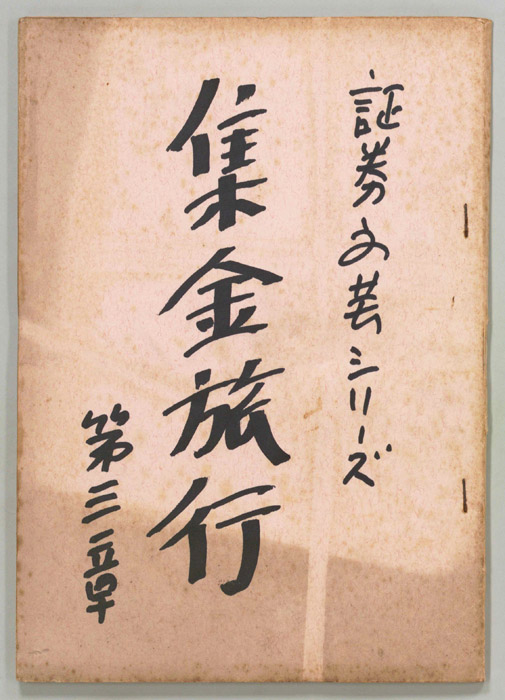 証券文芸シリーズ
集金旅行
第三章